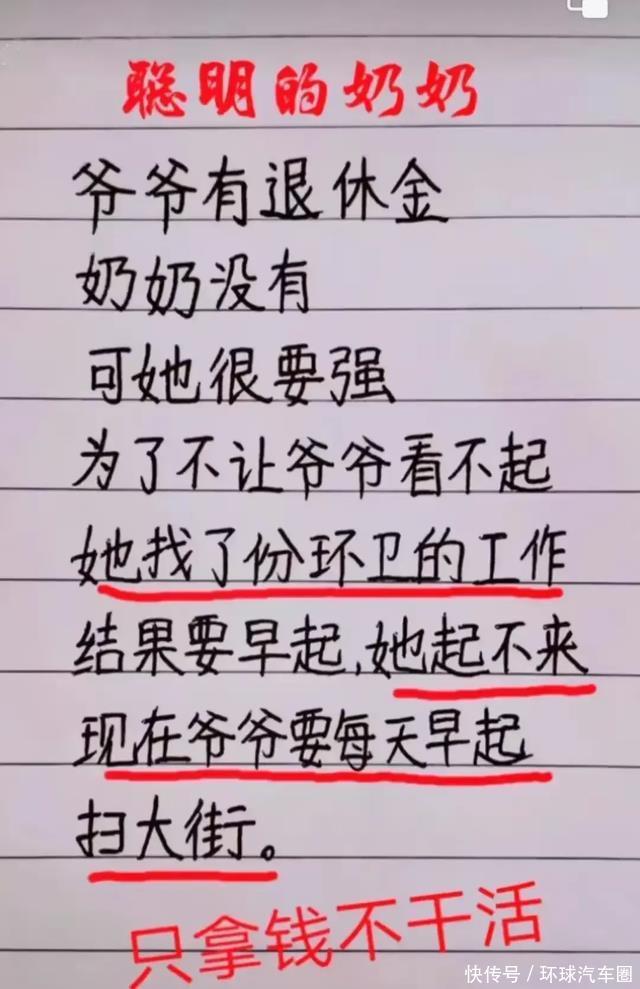 聪明的奶奶
爷爷有退休金
奶奶没有
可她很要强
为了不让爷爷看不起
她找了份环卫的工作
结果要早起,她起不来
现在爷爷要每天早起
扫大街。
只拿钱不干活
快传号/环球汽车圈